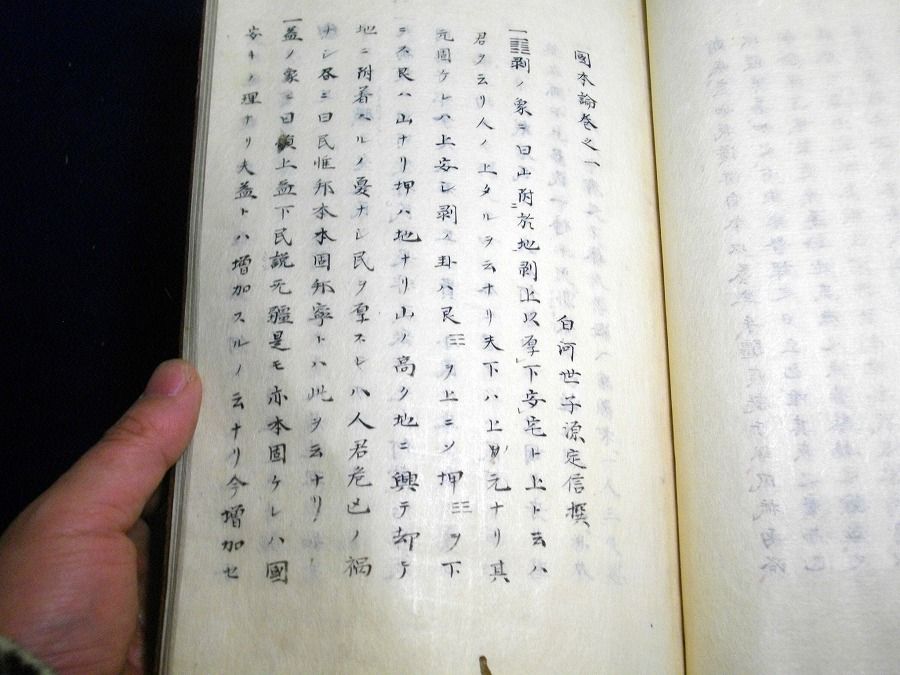 國本論卷之一
白河世子源定信撰
一䷖剥ノ象ニ曰山附於地剥上以厚下安宅ト上ト云ハ
君ヲ云リ人ノ上タルヲ云ナリ夫下ハ上ノ元ナリ其
元固ケレハ上安シ剥ノ卦ハ艮☶ヲ上ニシ坤☷ヲ下
ニス艮ハ山ナリ坤ハ地ナリ山ノ高ク地ニ興テ却テ
地ニ附着スルノ憂ナシ民ヲ厚スレハ人君危亡ノ禍
ナシ答ニ曰民惟邦本本固邦寧トハ此ヲ云ナリ
一益ノ彖ニ曰損上益下民説无疆是モ亦本固ケレハ國
安キノ理ナリ夫益トハ増加スルノ云ナリ今増加セ